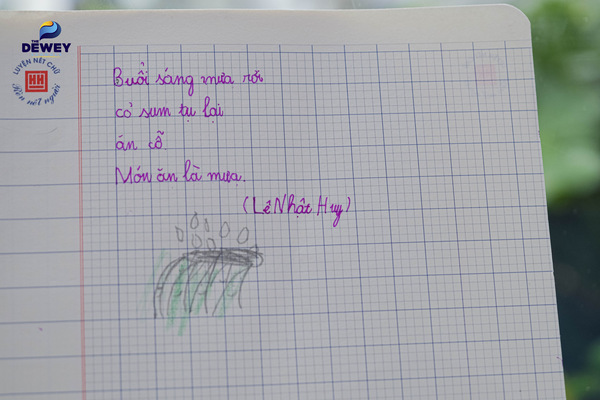 THE
DEWEY
LUYỆN NÉT CHỮ
HH
Rèn nết người
Buổi sáng mưa rơi
cỏ sum tụ lại
án cỗ.
Món ăn là mưa.
(Lê Nhật Huy)